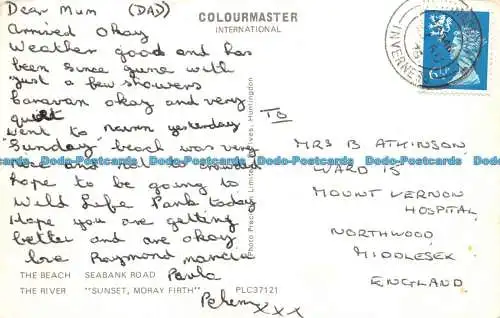 Dear Mum (DAD)
Arrived Okay
Weather good and has
been since gune with
just a few showers
Caravan okay and very
quiet
went to Nairn yesterday
"Sunday" beach was very
nice and not to crowded
hope to be going to
Wild Life Park today
Hope you are getting
better and are okay
love Raymond
Paula
xxx
COLOURMASTER
INTERNATIONAL
Photo Precision Limited, St. Ives, Huntingdon
TO
MRS B ATKINSON
WARD 15
MOUNT VERNON
HOSPITAL
NORTHWOOD
MIDDLESEX
ENGLAND
INVERNESS
6½P
THE BEACH SEABANK ROAD
THE RIVER "SUNSET, MORAY FIRTH" PLC37121
Dodo-Postcards.com Dodo-Postcards.com Dodo-Postcards.com Dodo-Postcards.com